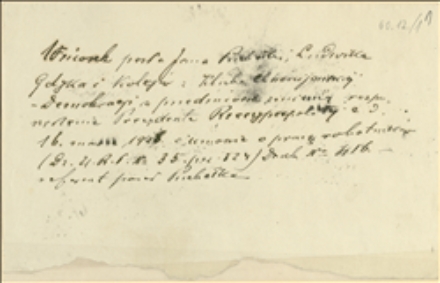 Wniosek posła Jana Puchałki, Ludwika
Gdyka i kolegów z Klubu Chrześcijańskiej
Demokracji w przedmiocie zmiany rozpo-
rządzenia Prezydenta Rzeczypospolitej z d.
16. marca 1928 o umowie o pracę robotników
(Dz. U. R. P. Nr 35. poz. 324) Druk Nr 416
referent poseł Puchałka